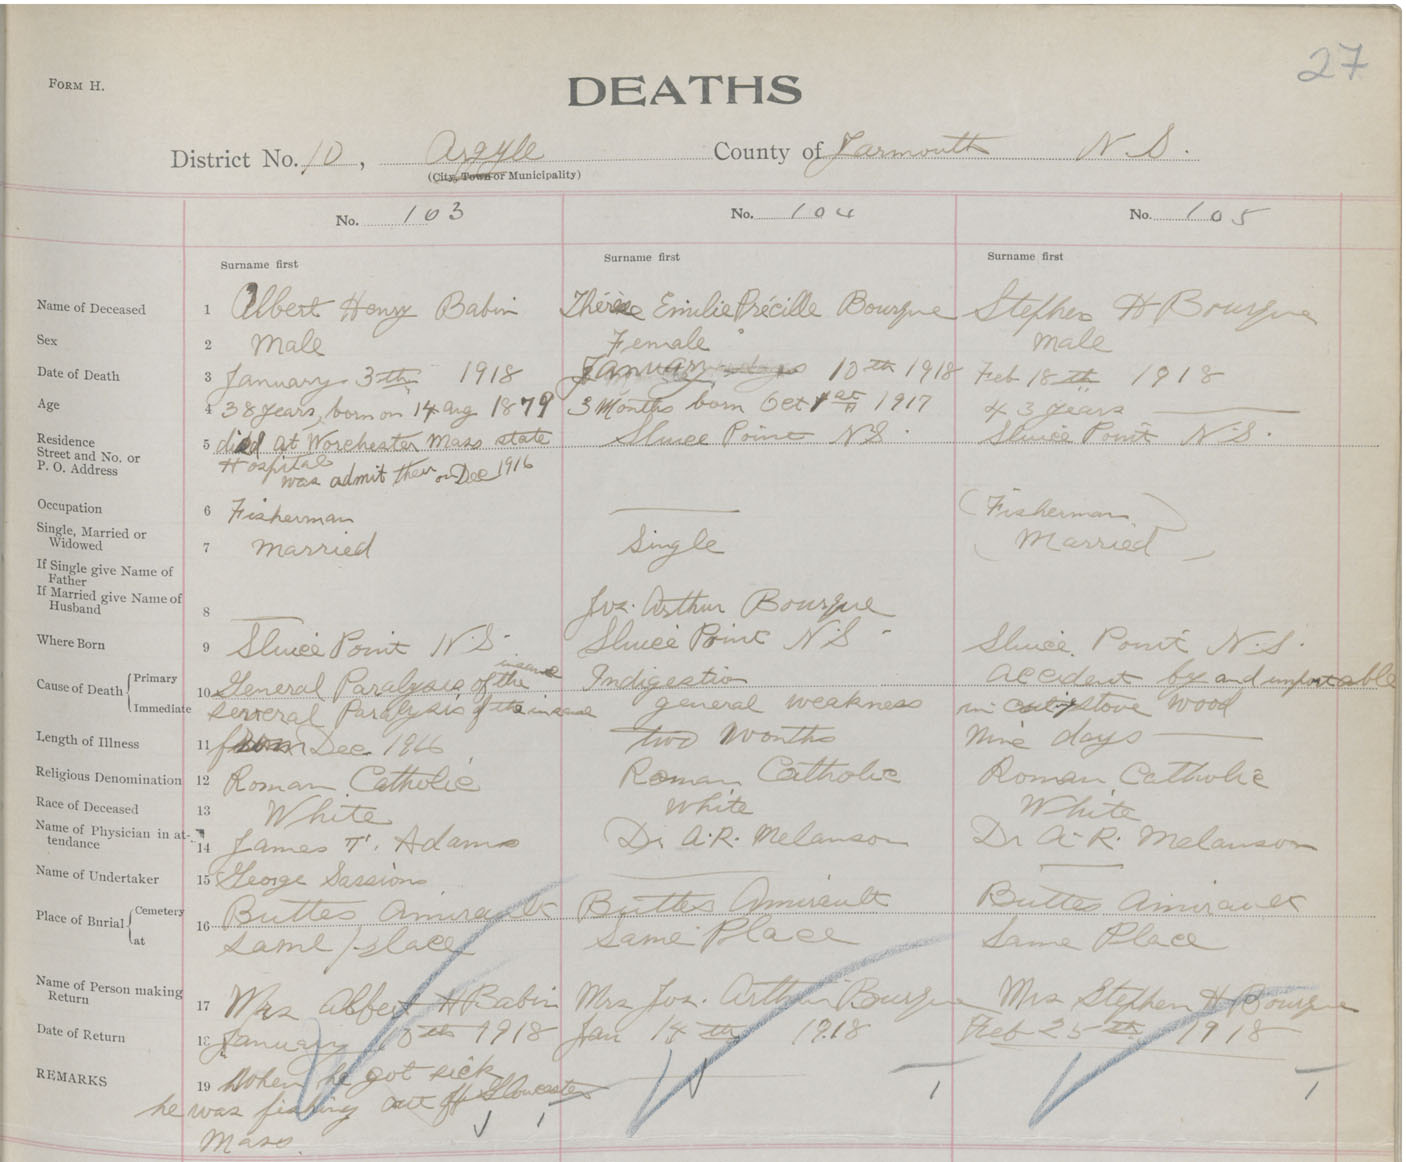 27
FORM H.
DEATHS
District No. 10, Argyle County of Yarmouth N.S.
(City, Town or Municipality)
No. 103 No. 104 No. 105
Surname first Surname first Surname first
Name of Deceased 1 Albert Henry Babin Thérèse Emilie Précille Bourque Stephen H Bourque
Sex 2 Male Female Male
Date of Death 3 January 3th 1918 January 10th 1918 Feb 18th 1918
Age 4 38 years, born on 14 aug 1879 3 Months born Oct 1st 1917 43 years
Residence 5 died at Worchester Mass state Sluice Point N.S. Sluice Point N.S.
Street and No. or Hospital
P. O. Address was admit their on Dec 1916
Occupation 6 Fisherman (Fisherman)
Single, Married or Widowed 7 Married Single (Married)
If Single give Name of Father
If Married give Name of Husband 8 Jos. Arthur Bourque
Where Born 9 Sluice Point N.S. Sluice Point N.S. Sluice Point N.S.
Cause of Death Primary 10 General Paralysis of the insane Indigestion accident by and
Immediate Paralysis of the insane general weakness in stove wood
Length of Illness 11 from Dec 1916 two Months Nine days
Religious Denomination 12 Roman Catholic Roman Catholic Roman Catholic
Race of Deceased 13 White White White
Name of Physician in attendance 14 James T. Adams Dr A.R. Melanson Dr A.R. Melanson
Name of Undertaker 15 George Sassions
Place of Burial Cemetery 16 Buttes Amirault Buttes Amirault Buttes Amirault
at same place Same Place Same Place
Name of Person making Return 17 Mrs Albert H Babin Mrs Jos. Arthur Bourque Mrs Stephen H Bourque
Date of Return 18 January 1918 Jan 14th 1918 Feb 25th 1918
REMARKS 19 When he got sick
he was fishing out of Gloucester
Mass.